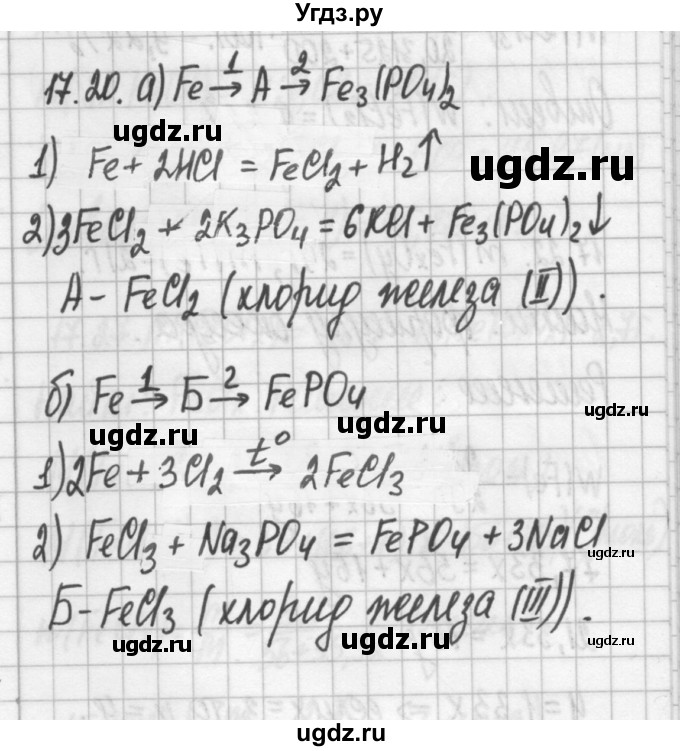 Угдз.ру
17.20. а) Fe →¹ A →² Fe₃(PO₄)₂
ugdz.ru
ugdz.ru
1) Fe + 2HCl = FeCl₂ + H₂↑
2) 3FeCl₂ + 2K₃PO₄ = 6KCl + Fe₃(PO₄)₂↓
ugdz.ru
A - FeCl₂ (хлорид железа (II)).
ugdz.ru
б) Fe →¹ Б →² FePO₄
ugdz.ru
ugdz.ru
1) 2Fe + 3Cl₂ →t° 2FeCl₃
2) FeCl₃ + Na₃PO₄ = FePO₄ + 3NaCl
ugdz.ru
Б - FeCl₃ (хлорид железа (III)).
ugdz.ru
ugdz.ru
ugdz.ru
ugdz.ru